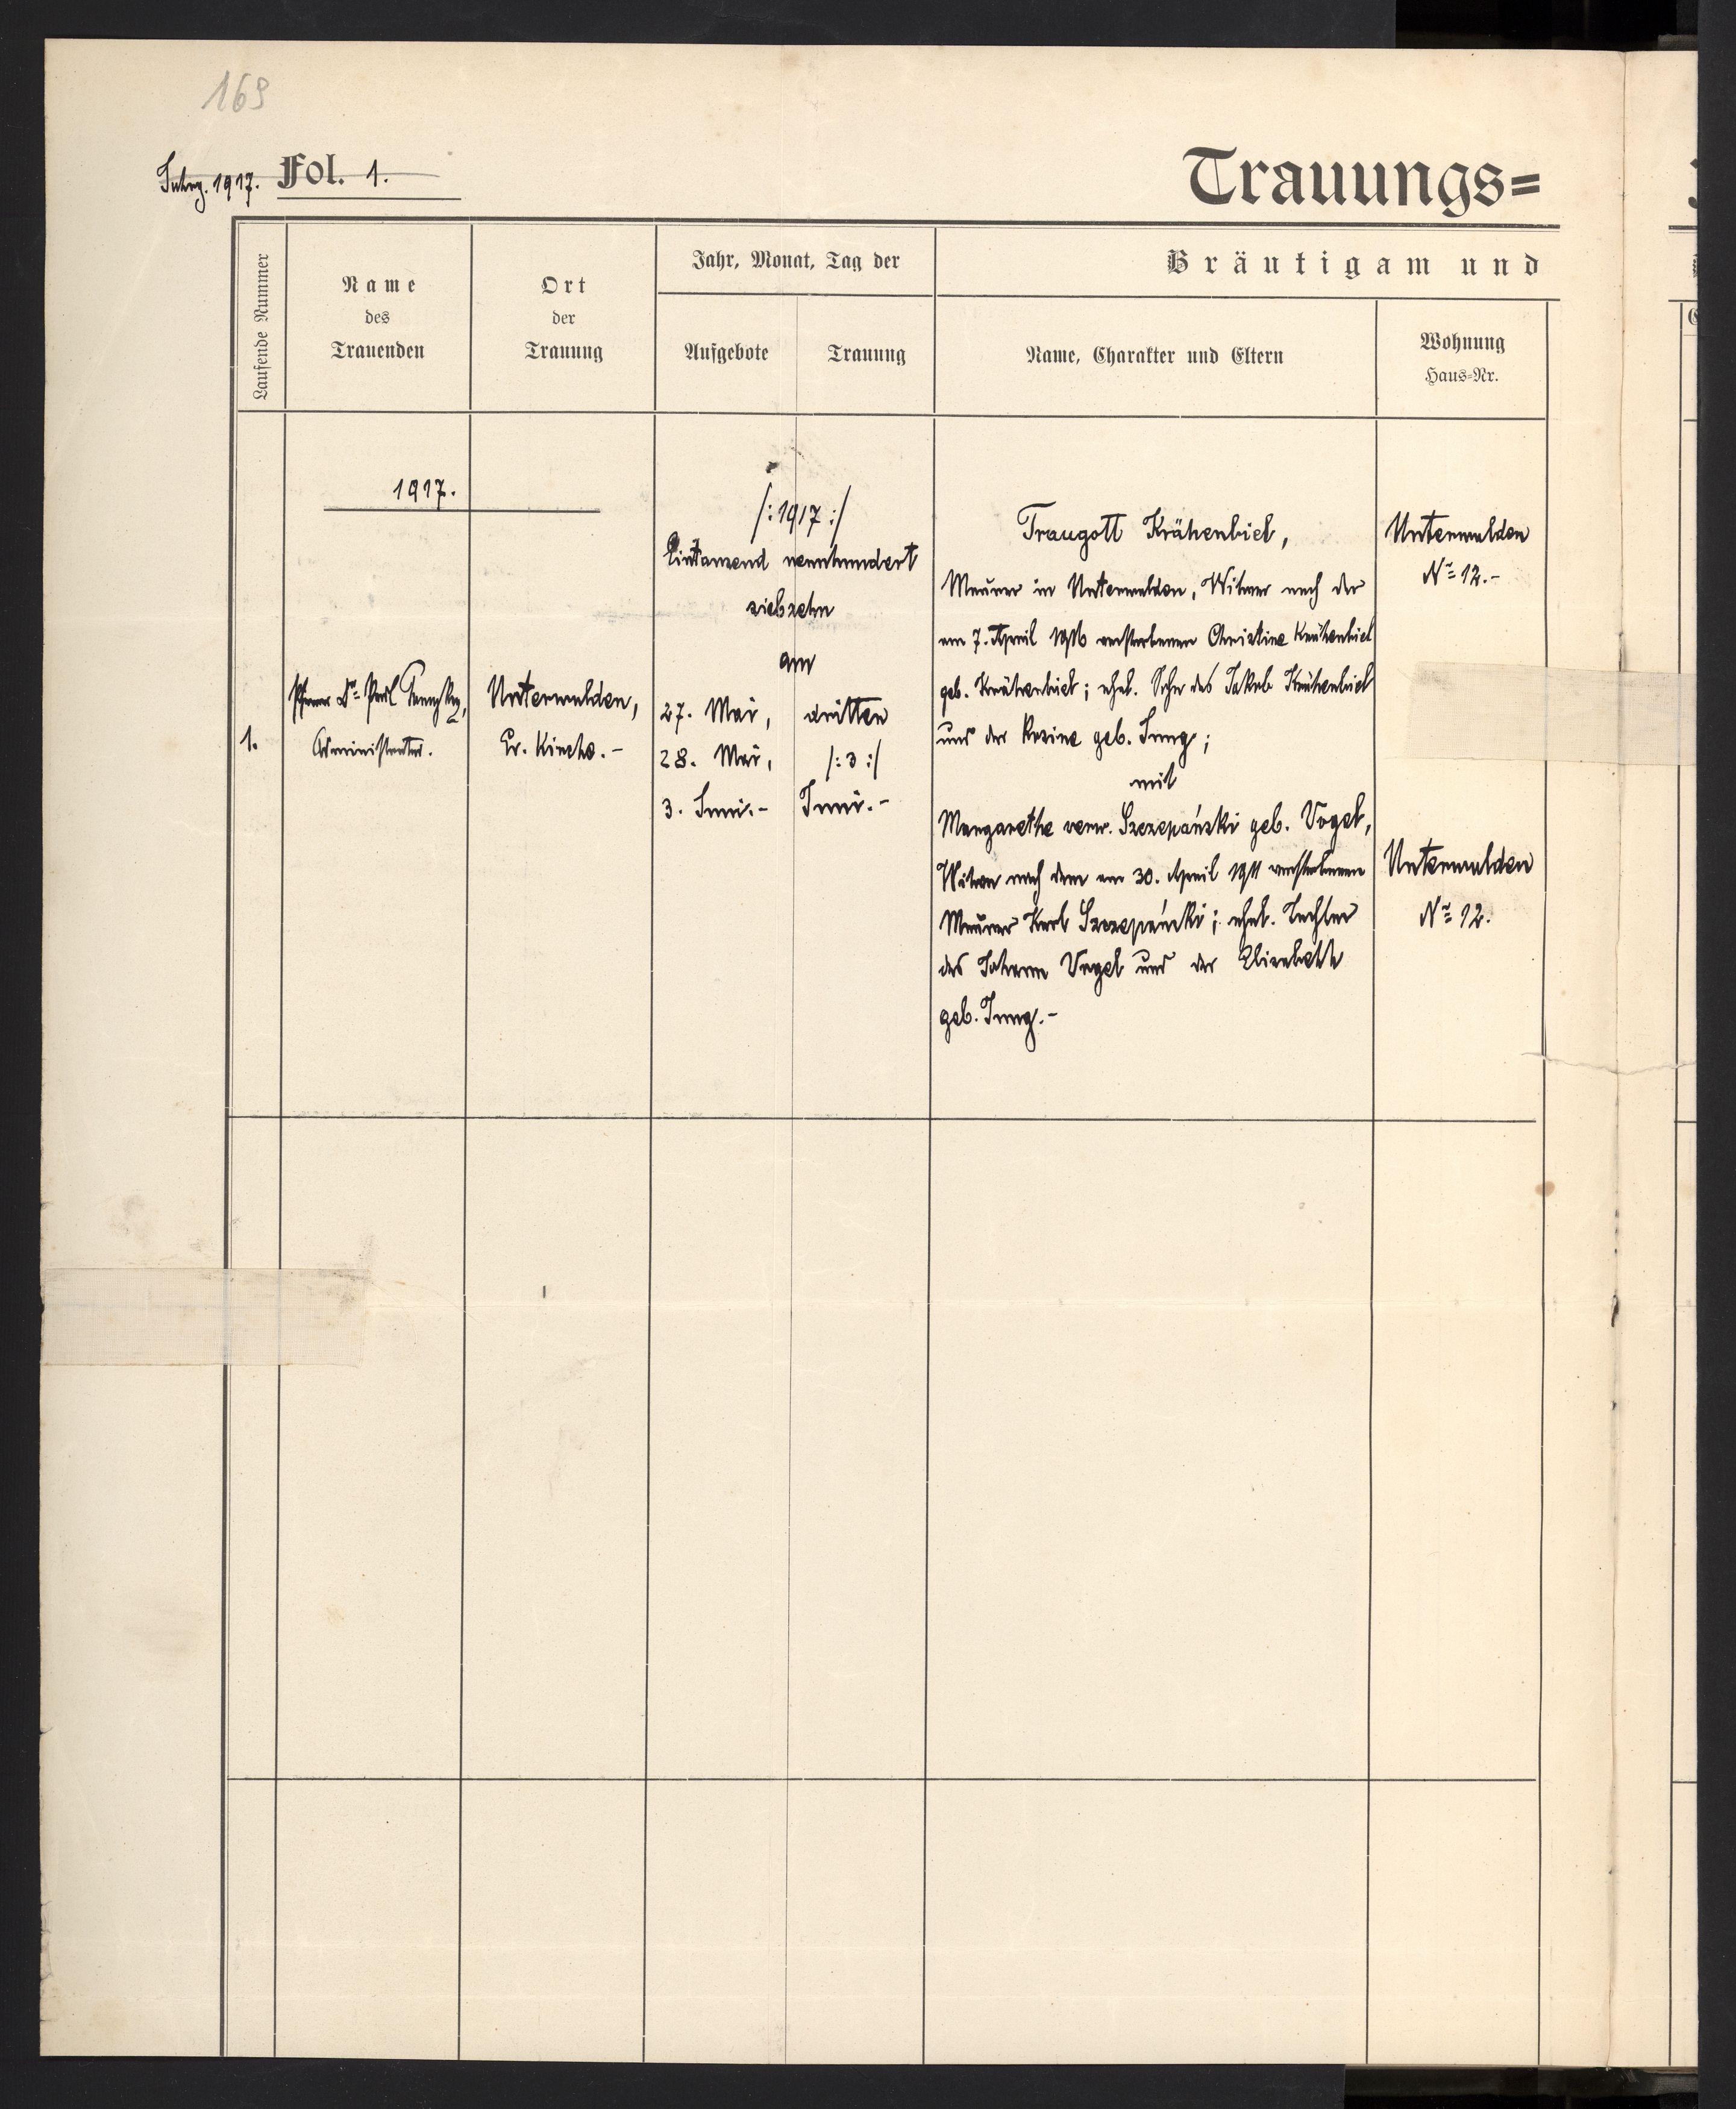 169
Jahrg. 1917. Fol. 1.
Trauungs=
Laufende Nummer
Name
des
Trauenden
Ort
der
Trauung
Jahr, Monat, Tag der
Aufgebote
Trauung
Bräutigam und
Name, Charakter und Eltern
Wohnung
Haus=Nr.
1917.
1.
Pfarrer Dr. Paul
Administrator.
Unterwalden,
Ev. Kirche.-
/: 1917 :/
Eintausend neunhundert
siebzehn
am
27. Mai,
28. Mai,
3. Juni.-
dritten
/: 3 :/
Juni.-
Traugott Krähenbiel,
Maurer in Unterwalden, Witwer nach der
am 7. April 1916 verstorbenen Christine Krähenbiel
geb. Krähenbiel; ehel. Sohn des Jakob Krähenbiel
und der Rosine geb. Jung;
mit
Margarethe verw. Szczepański geb. Vogel,
Witwe nach dem am 30. April 1911 verstorbenen
Maurer Karl Szczepański; ehel. Tochter
des Johann Vogel und der Elisabeth
geb. Jung.-
Unterwalden
No 12.-
Unterwalden
No 12.